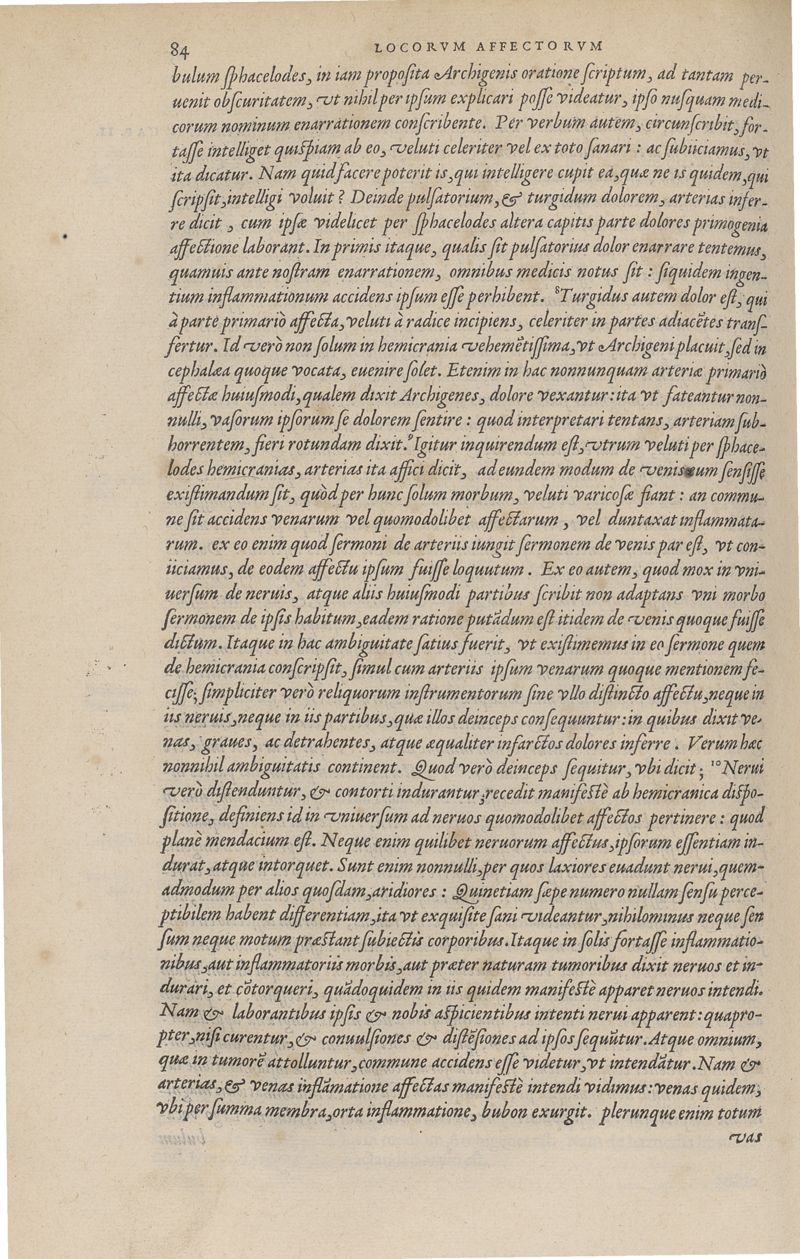 84 LOCORVM AFFECTORVM
bulum ſphacelodes, in iam propoſita Archigenis oratione ſcriptum, ad tantam per-
uenit obſcuritatem, vt nihil per ipſum explicari poſſe videatur, ipſo nuſquam medi-
corum nominum enarrationem conſcribente. Per verbum autem, circunſcribit, for-
taſſe intelliget quiſpiam ab eo, veluti celeriter vel ex toto ſanari : ac ſubiiciamus, vt
ita dicatur. Nam quid facere poterit is, qui intelligere cupit ea, quæ ne is quidem, qui
ſcripſit, intelligi voluit ? Deinde pulſatorium, & turgidum dolorem, arterias infer-
re dicit , cum ipſæ videlicet per ſphacelodes altera capitis parte dolores primogenia
affectione laborant. In primis itaque, qualis ſit pulſatorius dolor enarrare tentemus,
quamuis ante noſtram enarrationem, omnibus medicis notus ſit : ſiquidem ingen-
tium inflammationum accidens ipſum eſſe perhibent. ⁸Turgidus autem dolor eſt, qui
à parte primariò affecta, veluti à radice incipiens, celeriter in partes adiacẽtes tranſ-
fertur. Id verò non ſolum in hemicrania vehemẽtiſſima, vt Archigeni placuit, ſed in
cephalæa quoque vocata, euenire ſolet. Etenim in hac nonnunquam arteriæ primariò
affectæ huiuſmodi, qualem dixit Archigenes, dolore vexantur: ita vt fateantur non-
nulli, vaſorum ipſorum ſe dolorem ſentire : quod interpretari tentans, arteriam ſub-
horrentem, fieri rotundam dixit. ⁹Igitur inquirendum eſt, vtrum veluti per ſphace-
lodes hemicranias, arterias ita affici dicit, ad eundem modum de venis eum ſenſiſſe
exiſtimandum ſit, quòd per hunc ſolum morbum, veluti varicoſæ fiant : an commu-
ne ſit accidens venarum vel quomodolibet affectarum , vel duntaxat inflammata-
rum. ex eo enim quod ſermoni de arteriis iungit ſermonem de venis par eſt, vt con-
iiciamus, de eodem affectu ipſum fuiſſe loquutum . Ex eo autem, quod mox in vni-
uerſum de neruis, atque aliis huiuſmodi partibus ſcribit non adaptans vni morbo
ſermonem de ipſis habitum, eadem ratione putãdum eſt itidem de venis quoque fuiſſe
dictum. Itaque in hac ambiguitate ſatius fuerit, vt exiſtimemus in eo ſermone quem
de hemicrania conſcripſit, ſimul cum arteriis ipſum venarum quoque mentionem fe-
ciſſe; ſimpliciter verò reliquorum inſtrumentorum ſine vllo diſtincto affectu, neque in
iis neruis, neque in iis partibus, quæ illos deinceps conſequuntur: in quibus dixit ve-
nas, graues, ac detrahentes, atque æqualiter infarctos dolores inferre . Verum hæc
nonnihil ambiguitatis continent. Quod verò deinceps ſequitur, vbi dicit ; ¹⁰Nerui
verò diſtenduntur, & contorti indurantur, recedit manifeſtè ab hemicranica diſpo-
ſitione, definiens id in vniuerſum ad neruos quomodolibet affectos pertinere : quod
planè mendacium eſt. Neque enim quilibet neruorum affectus, ipſorum eſſentiam in-
durat, atque intorquet. Sunt enim nonnulli, per quos laxiores euadunt nerui, quem-
admodum per alios quoſdam, aridiores : Quinetiam ſæpenumero nullam ſenſu perce-
ptibilem habent differentiam, ita vt exquiſite ſani videantur, nihilominus neque ſen
ſum neque motum præſtant ſubiectis corporibus. Itaque in ſolis fortaſſe inflammatio-
nibus, aut inflammatoriis morbis, aut præter naturam tumoribus dixit neruos et in-
durari, et cõtorqueri, quãdoquidem in iis quidem manifeſtè apparet neruos intendi.
Nam & laborantibus ipſis & nobis aſpicientibus intenti nerui apparent: quapro-
pter, niſi curentur, & conuulſiones & diſtẽſiones ad ipſos ſequũtur. Atque omnium,
quæ in tumorẽ attolluntur, commune accidens eſſe videtur, vt intendãtur. Nam &
arterias, & venas inflãmatione affectas manifeſtè intendi vidimus: venas quidem,
vbi per ſumma membra, orta inflammatione, bubon exurgit. plerunque enim totum
vas